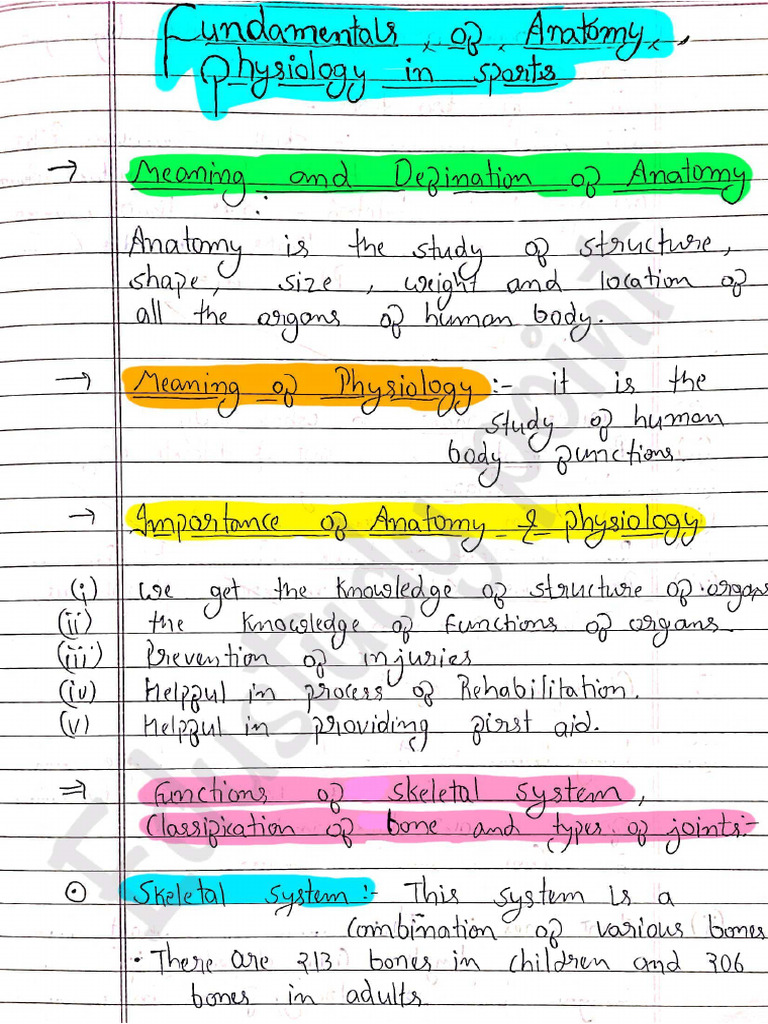 Fundamentals of Anatomy,
Physiology in sports
→ Meaning and Defination of Anatomy
Anatomy is the study of structure,
shape, size, weight and location of
all the organs of human body.
→ Meaning of Physiology :- it is the
study of human
body functions
→ Importance of Anatomy & physiology
(i) we get the knowledge of structure of organs
(ii) the knowledge of functions of organs.
(iii) Prevention of injuries
(iv) Helpful in process of Rehabilitation.
(v) Helpful in providing first aid.
⇒ Functions of skeletal system,
Classification of bone and types of joints:-
⊙ Skeletal system:- This system is a
combination of various bones
• There are 213 bones in children and 206
bones in adults
Edustudy point